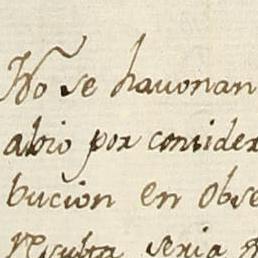 No se havonan
alvio por consider
bucion en Obse
Resulta seria